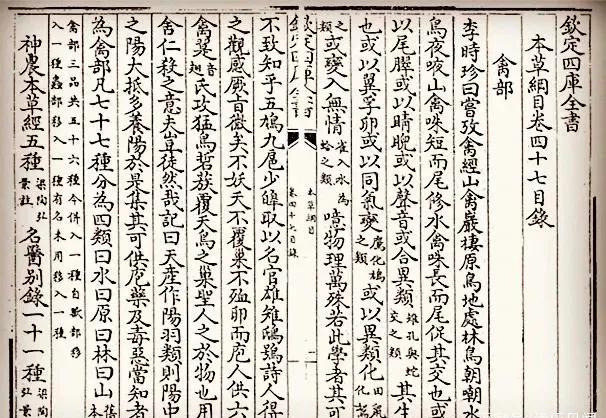 欽定四庫全書
本草綱目卷四十七目錄
禽部
李時珍曰嘗攷禽經山禽巖棲原鳥地處林鳥朝嘲水
鳥夜㖡山禽咮短而尾修水禽咮長而尾促其交也或
以尾臎或以睛睨或以聲音或合異類雉孔與蛇交之類其生
也或以翼孚卵或以同氣變鷹化鳩之類或以異類化田鼠化
之類或變入無情雀入水為蛤之類噫物理萬殊若此學者其可
欽定四庫全書
本草綱目
卷四十七目錄
不致知乎五鳩九扈少皥取以名官雄雉鴟鴞詩人得
之觀感厥旨微矣不妖夭不覆巢不殈卵而庖人供六
禽翨音翅氏攻猛鳥硩蔟覆夭鳥之巢聖人之於物也用
舍仁殺之意夫豈徒然哉記曰天產作陽羽類則陽中
之陽大抵多養陽於是集其可供庖藥及毒惡當知者
為禽部凡七十七種分為四類曰水曰原曰林曰山舊本
禽部三品共五十六種今併入一種自獸部移
入一種蟲部移入一種有名未用移入一種
神農本草經五種梁陶弘景註名醫別錄一十一種梁陶弘景